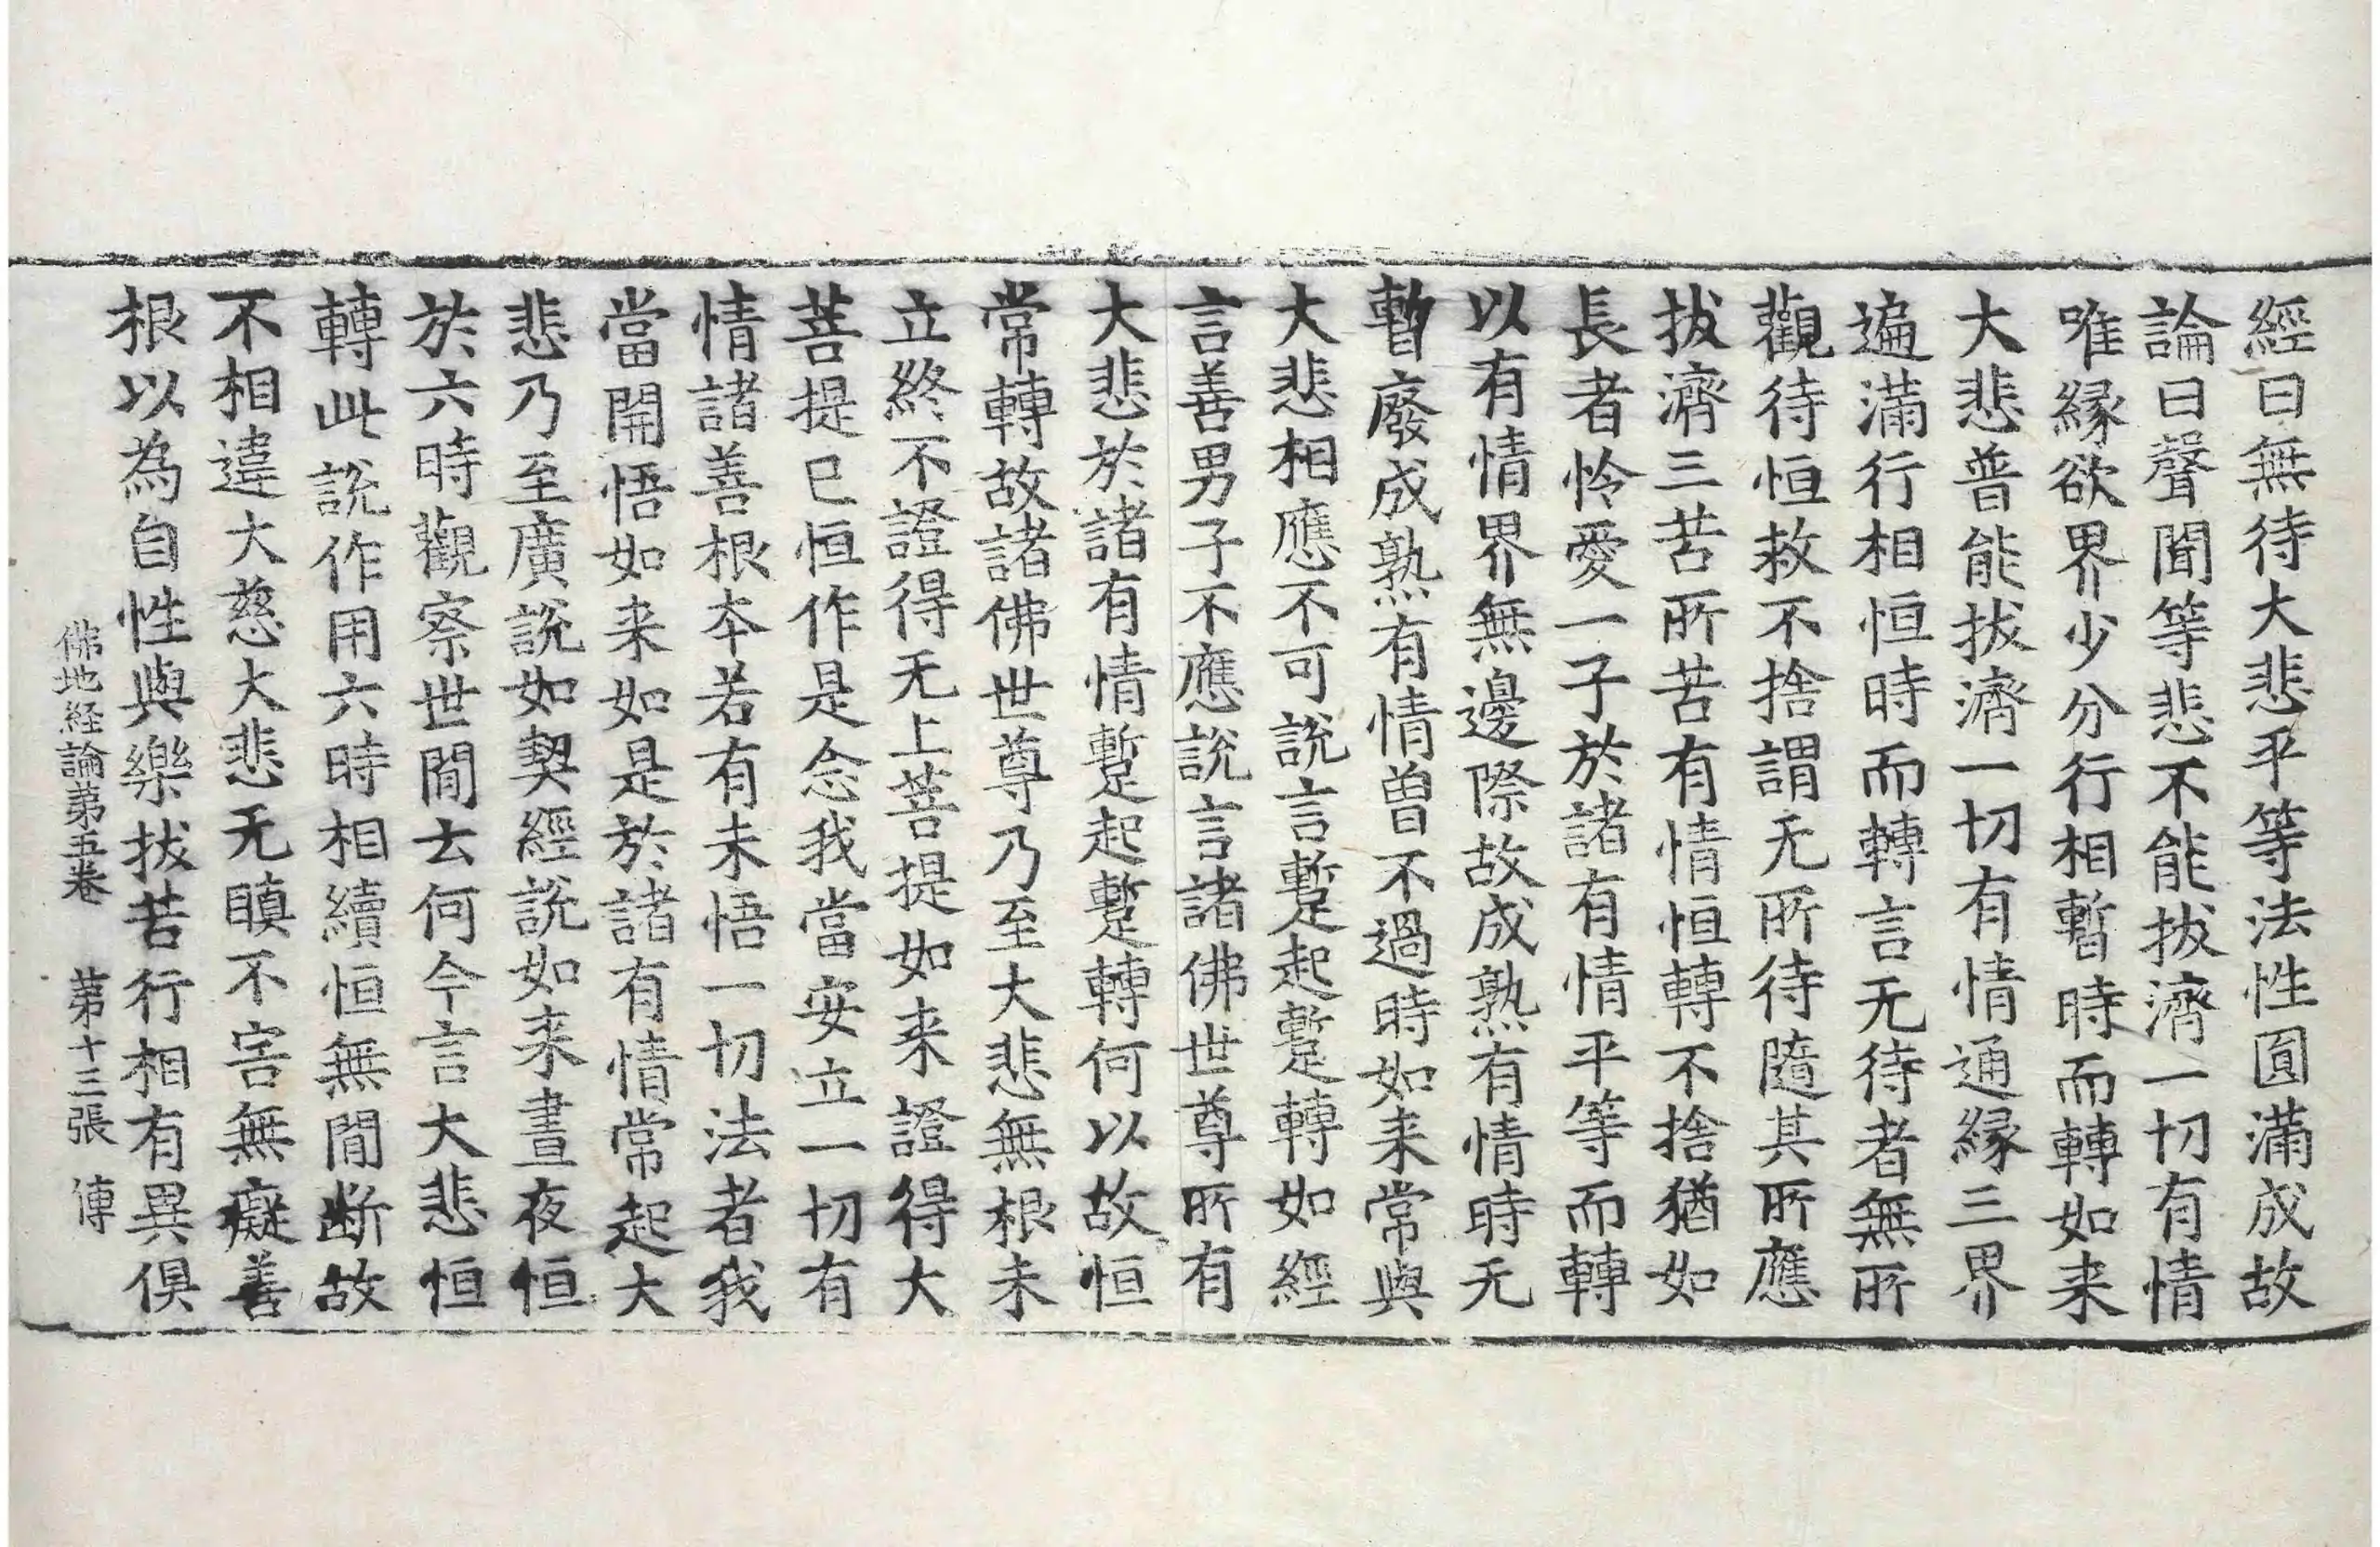 經曰無待大悲平等法性圓滿成故
論曰聲聞等悲不能拔濟一切有情
唯緣欲界少分行相暫時而轉如来
大悲普能拔濟一切有情通緣三界
遍滿行相恒時而轉言无待者無所
觀待恒救不捨謂无所待隨其所應
拔濟三苦所苦有情恒轉不捨猶如
長者怜愛一子於諸有情平等而轉
以有情界無邊際故成熟有情時无
暫廢成熟有情曽不過時如来常與
大悲相應不可說言蹔起蹔轉如經
言善男子不應說言諸佛世尊所有
大悲於諸有情蹔起蹔轉何以故恒
常轉故諸佛世尊乃至大悲無根未
立終不證得无上菩提如来證得大
菩提已恒作是念我當安立一切有
情諸善根夲若有未悟一切法者我
當開悟如来如是於諸有情常起大
悲乃至廣說如契經說如来晝夜恒
於六時觀察世間去何今言大悲恒
轉此說作用六時相續恒無間断故
不相違大慈大悲无瞋不害無癡善
根以為自性與樂拔苦行相有異俱
佛地経論苐五卷　苐十三張　傳